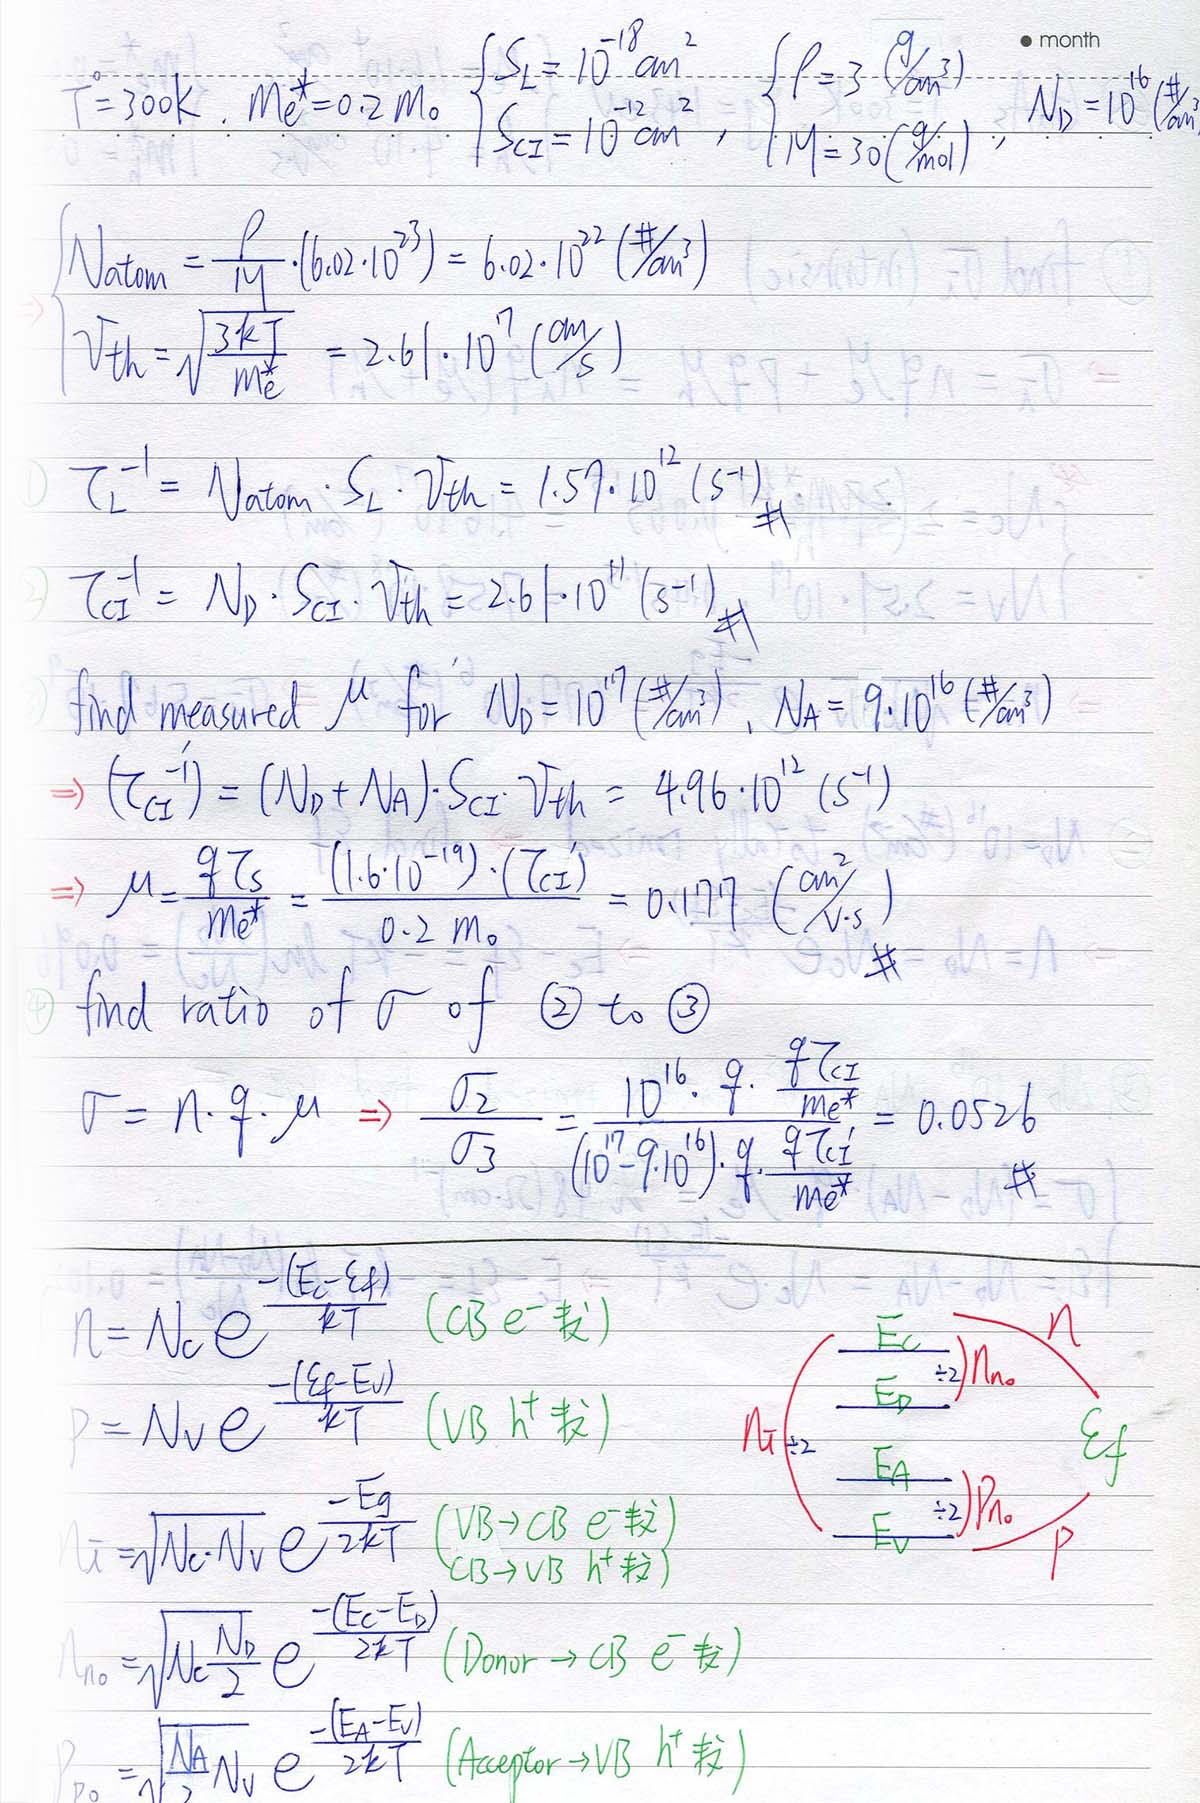 ● month
T = 300K . me* = 0.2 m₀ { S_L = 10⁻¹⁸ cm² , S_CI = 10⁻¹² cm² , { ρ = 3 (g/cm³) , M = 30 (g/mol) , N_D = 10¹⁶ (#/cm³
⇒ { N_atom = ρ/M · (6.02·10²³) = 6.02·10²² (#/cm³)
V_th = √(3kT/me*) = 2.61·10⁷ (cm/s)
1) τ_L⁻¹ = N_atom · S_L · V_th = 1.57·10¹² (s⁻¹) #
2) τ_CI⁻¹ = N_D · S_CI · V_th = 2.61·10¹¹ (s⁻¹) #
find measured μ for N_D = 10¹⁷ (#/cm³) , N_A = 9·10¹⁶ (#/cm³)
⇒ (τ_CI⁻¹') = (N_D + N_A)·S_CI·V_th = 4.96·10¹² (s⁻¹)
⇒ μ = qτ_s/me* = (1.6·10⁻¹⁹)·(τ_CI')/0.2 m₀ = 0.177 (cm²/V·s) #
④ find ratio of σ of ② to ③
σ = n·q·μ ⇒ σ₂/σ₃ = (10¹⁶ · q · qτ_CI/me*)/((10¹⁷-9·10¹⁶) · q · qτ_CI'/me*) = 0.0526 #
n = Nc e^(-(Ec-Ef)/kT) (CB e⁻ 数)
p = Nv e^(-(Ef-Ev)/kT) (VB h⁺ 数)
ni = √(Nc·Nv) e^(-Eg/2kT) (VB→CB e⁻ 数
CB→VB h⁺ 数)
n_no = √(Nc N_D/2) e^(-(Ec-E_D)/2kT) (Donor → CB e⁻ 数)
p_po = √(N_A/2 Nv) e^(-(E_A-Ev)/2kT) (Acceptor → VB h⁺ 数)
Ec n
÷2 n_no
E_D
ni ÷2 Ef
E_A
÷2 p_no
Ev p